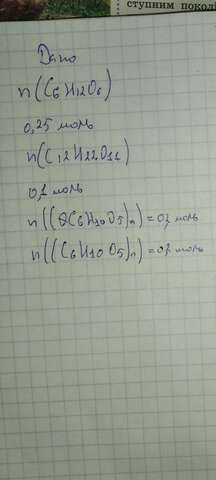 ступним поколі
Дано
n(C6H12O6)
0,25 моль
n(C12H22O11)
0,1 моль
n((C6H10O5)n) = 0,1 моль
n((C6H10O5)n) = 0,1 моль